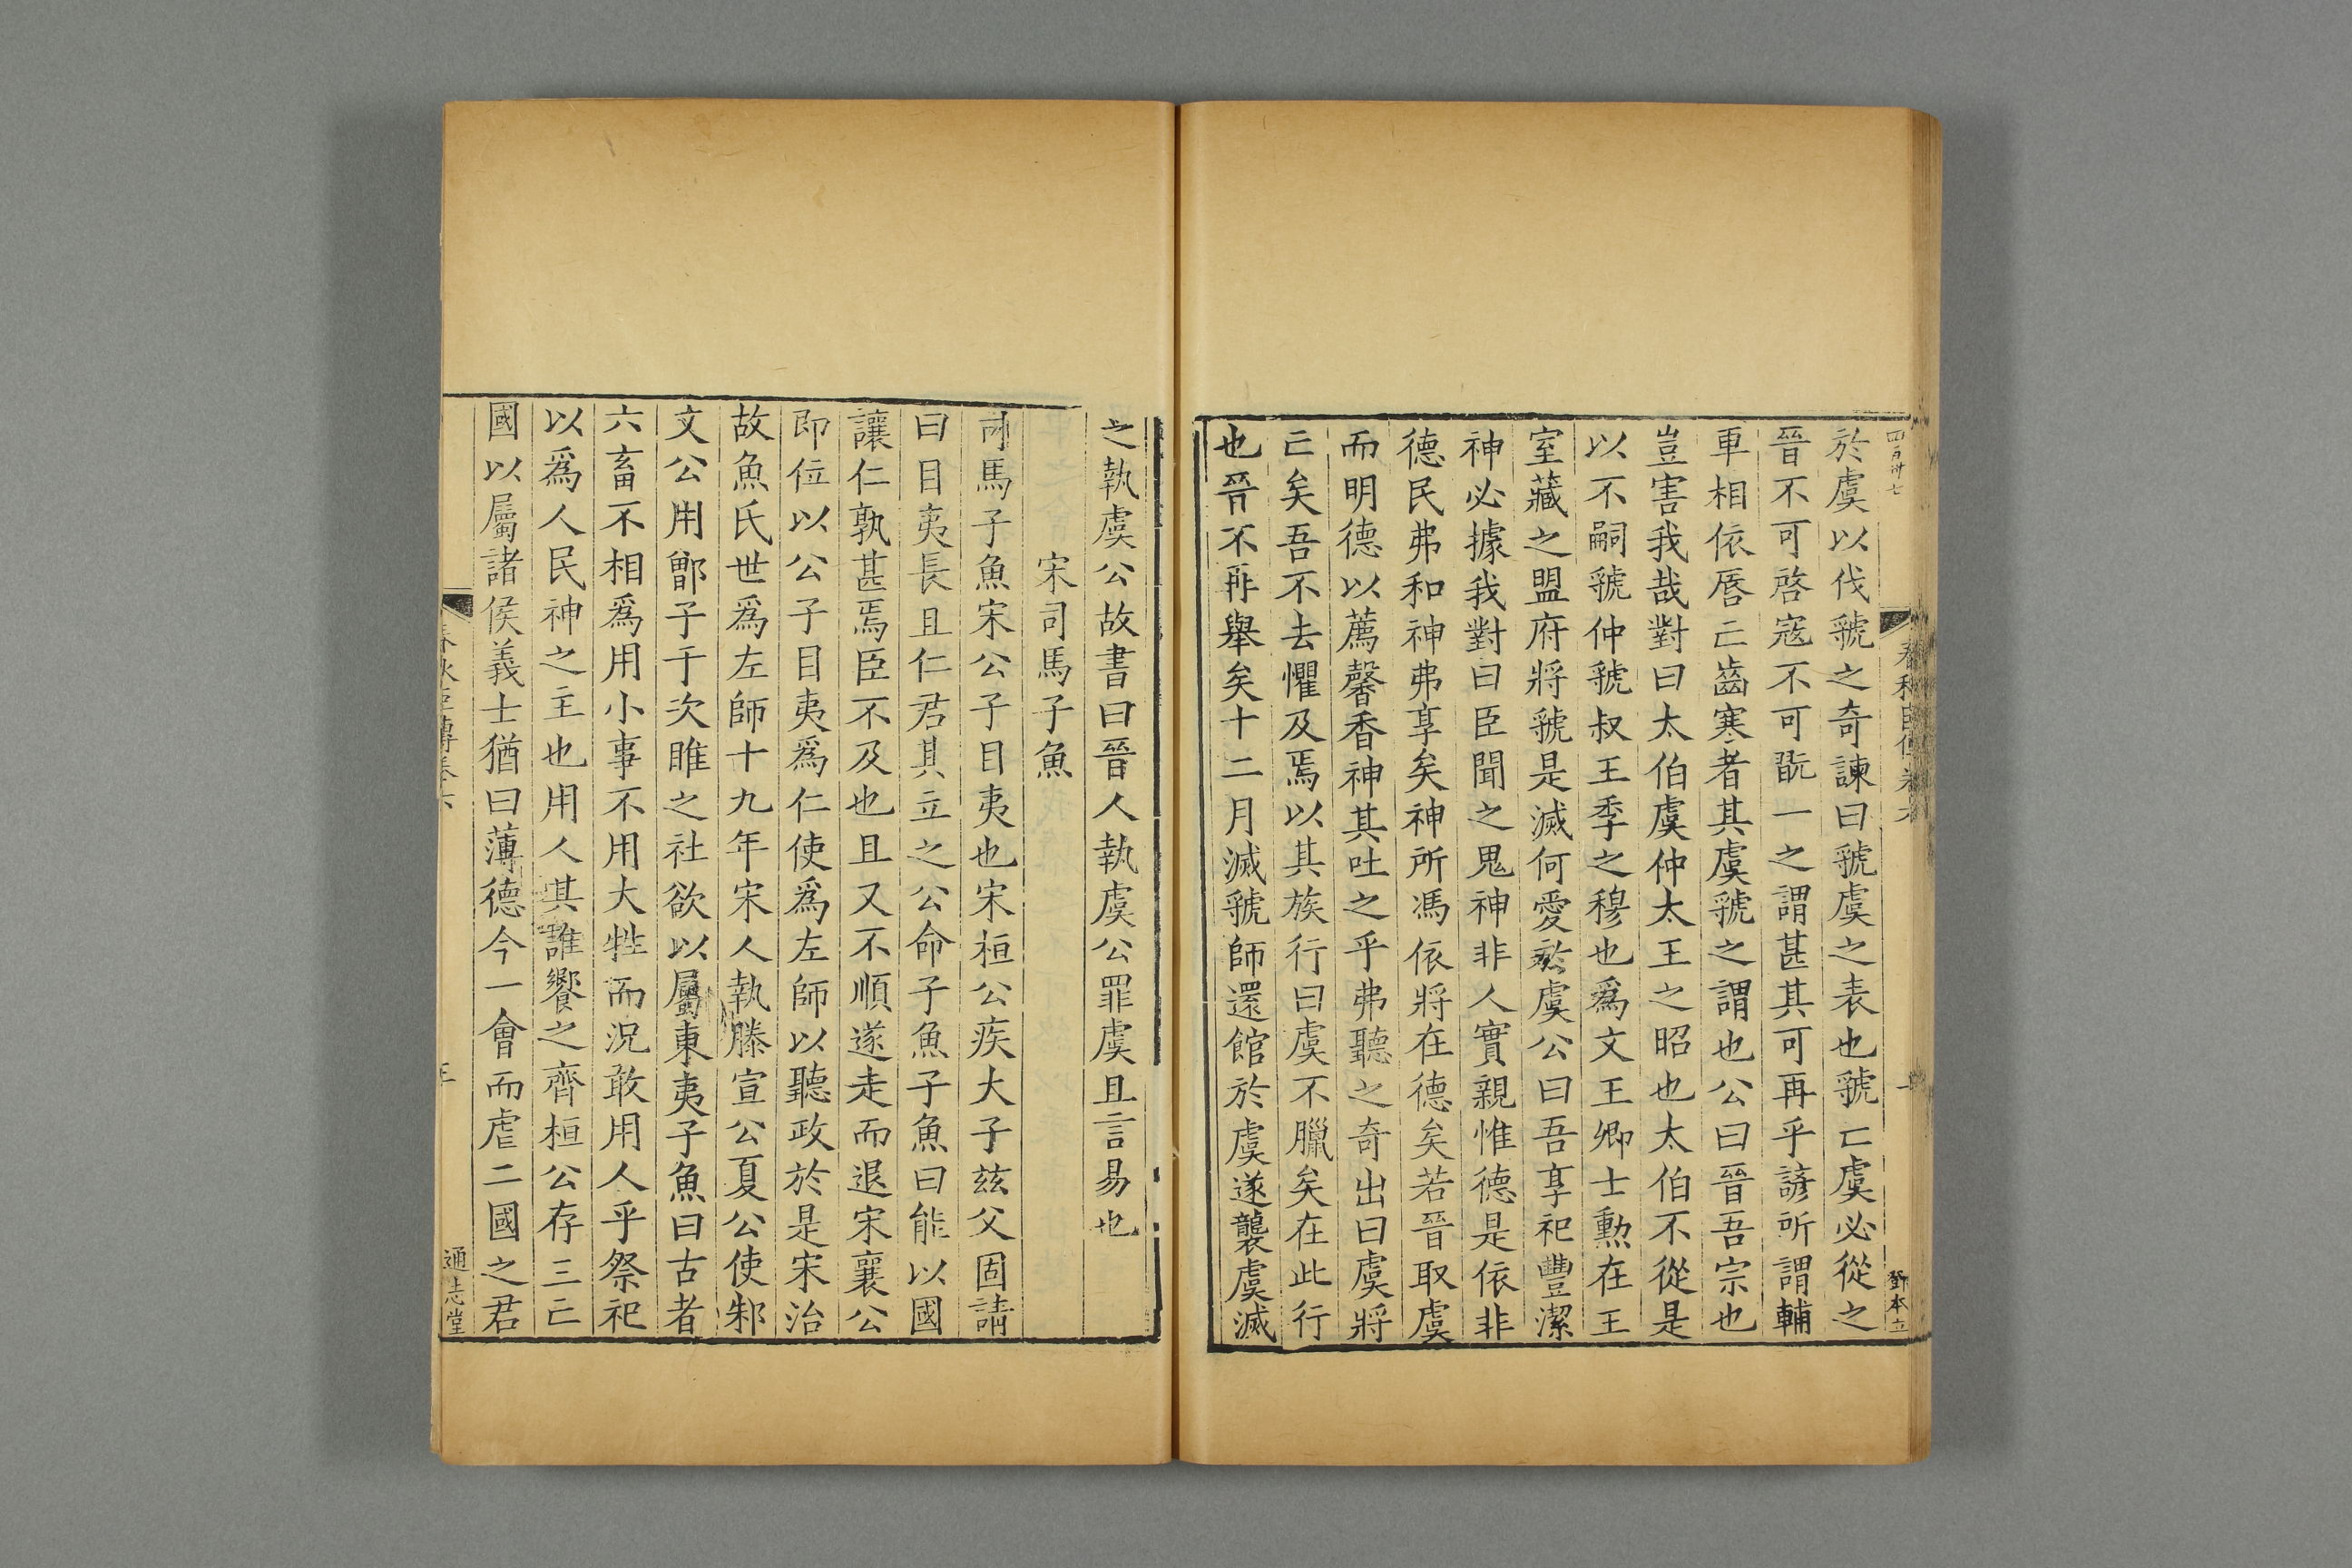 四百卅七
於虞以伐虢之奇諫曰虢虞之表也虢亡虞必從之
晉不可啓寇不可翫一之謂甚其可再乎諺所謂輔
車相依唇亡齒寒者其虞虢之謂也公曰晉吾宗也
豈害我哉對曰太伯虞仲太王之昭也太伯不從是
以不嗣虢仲虢叔王季之穆也爲文王卿士勳在王
室藏之盟府將虢是滅何愛於虞公曰吾享祀豐潔
神必據我對曰臣聞之鬼神非人實親惟德是依非
德民弗和神弗享矣神所馮依將在德矣若晉取虞
而明德以薦馨香神其吐之乎弗聽之奇出曰虞將
亡矣吾不去懼及焉以其族行曰虞不臘矣在此行
也晉不再舉矣十二月滅虢師還館於虞遂襲虞滅
之執虞公故書曰晉人執虞公罪虞且言易也
宋司馬子魚
司馬子魚宋公子目夷也宋桓公疾大子茲父固請
曰目夷長且仁君其立之公命子魚子魚曰能以國
讓仁孰甚焉臣不及也且又不順遂走而退宋襄公
即位以公子目夷爲仁使爲左師以聽政於是宋治
故魚氏世爲左師十九年宋人執滕宣公夏公使邾
文公用鄫子于次睢之社欲以屬東夷子魚曰古者
六畜不相爲用小事不用大牲而況敢用人乎祭祀
以爲人民神之主也用人其誰饗之齊桓公存三亡
國以屬諸侯義士猶曰薄德今一會而虐二國之君
春秋臣傳卷六
通志堂